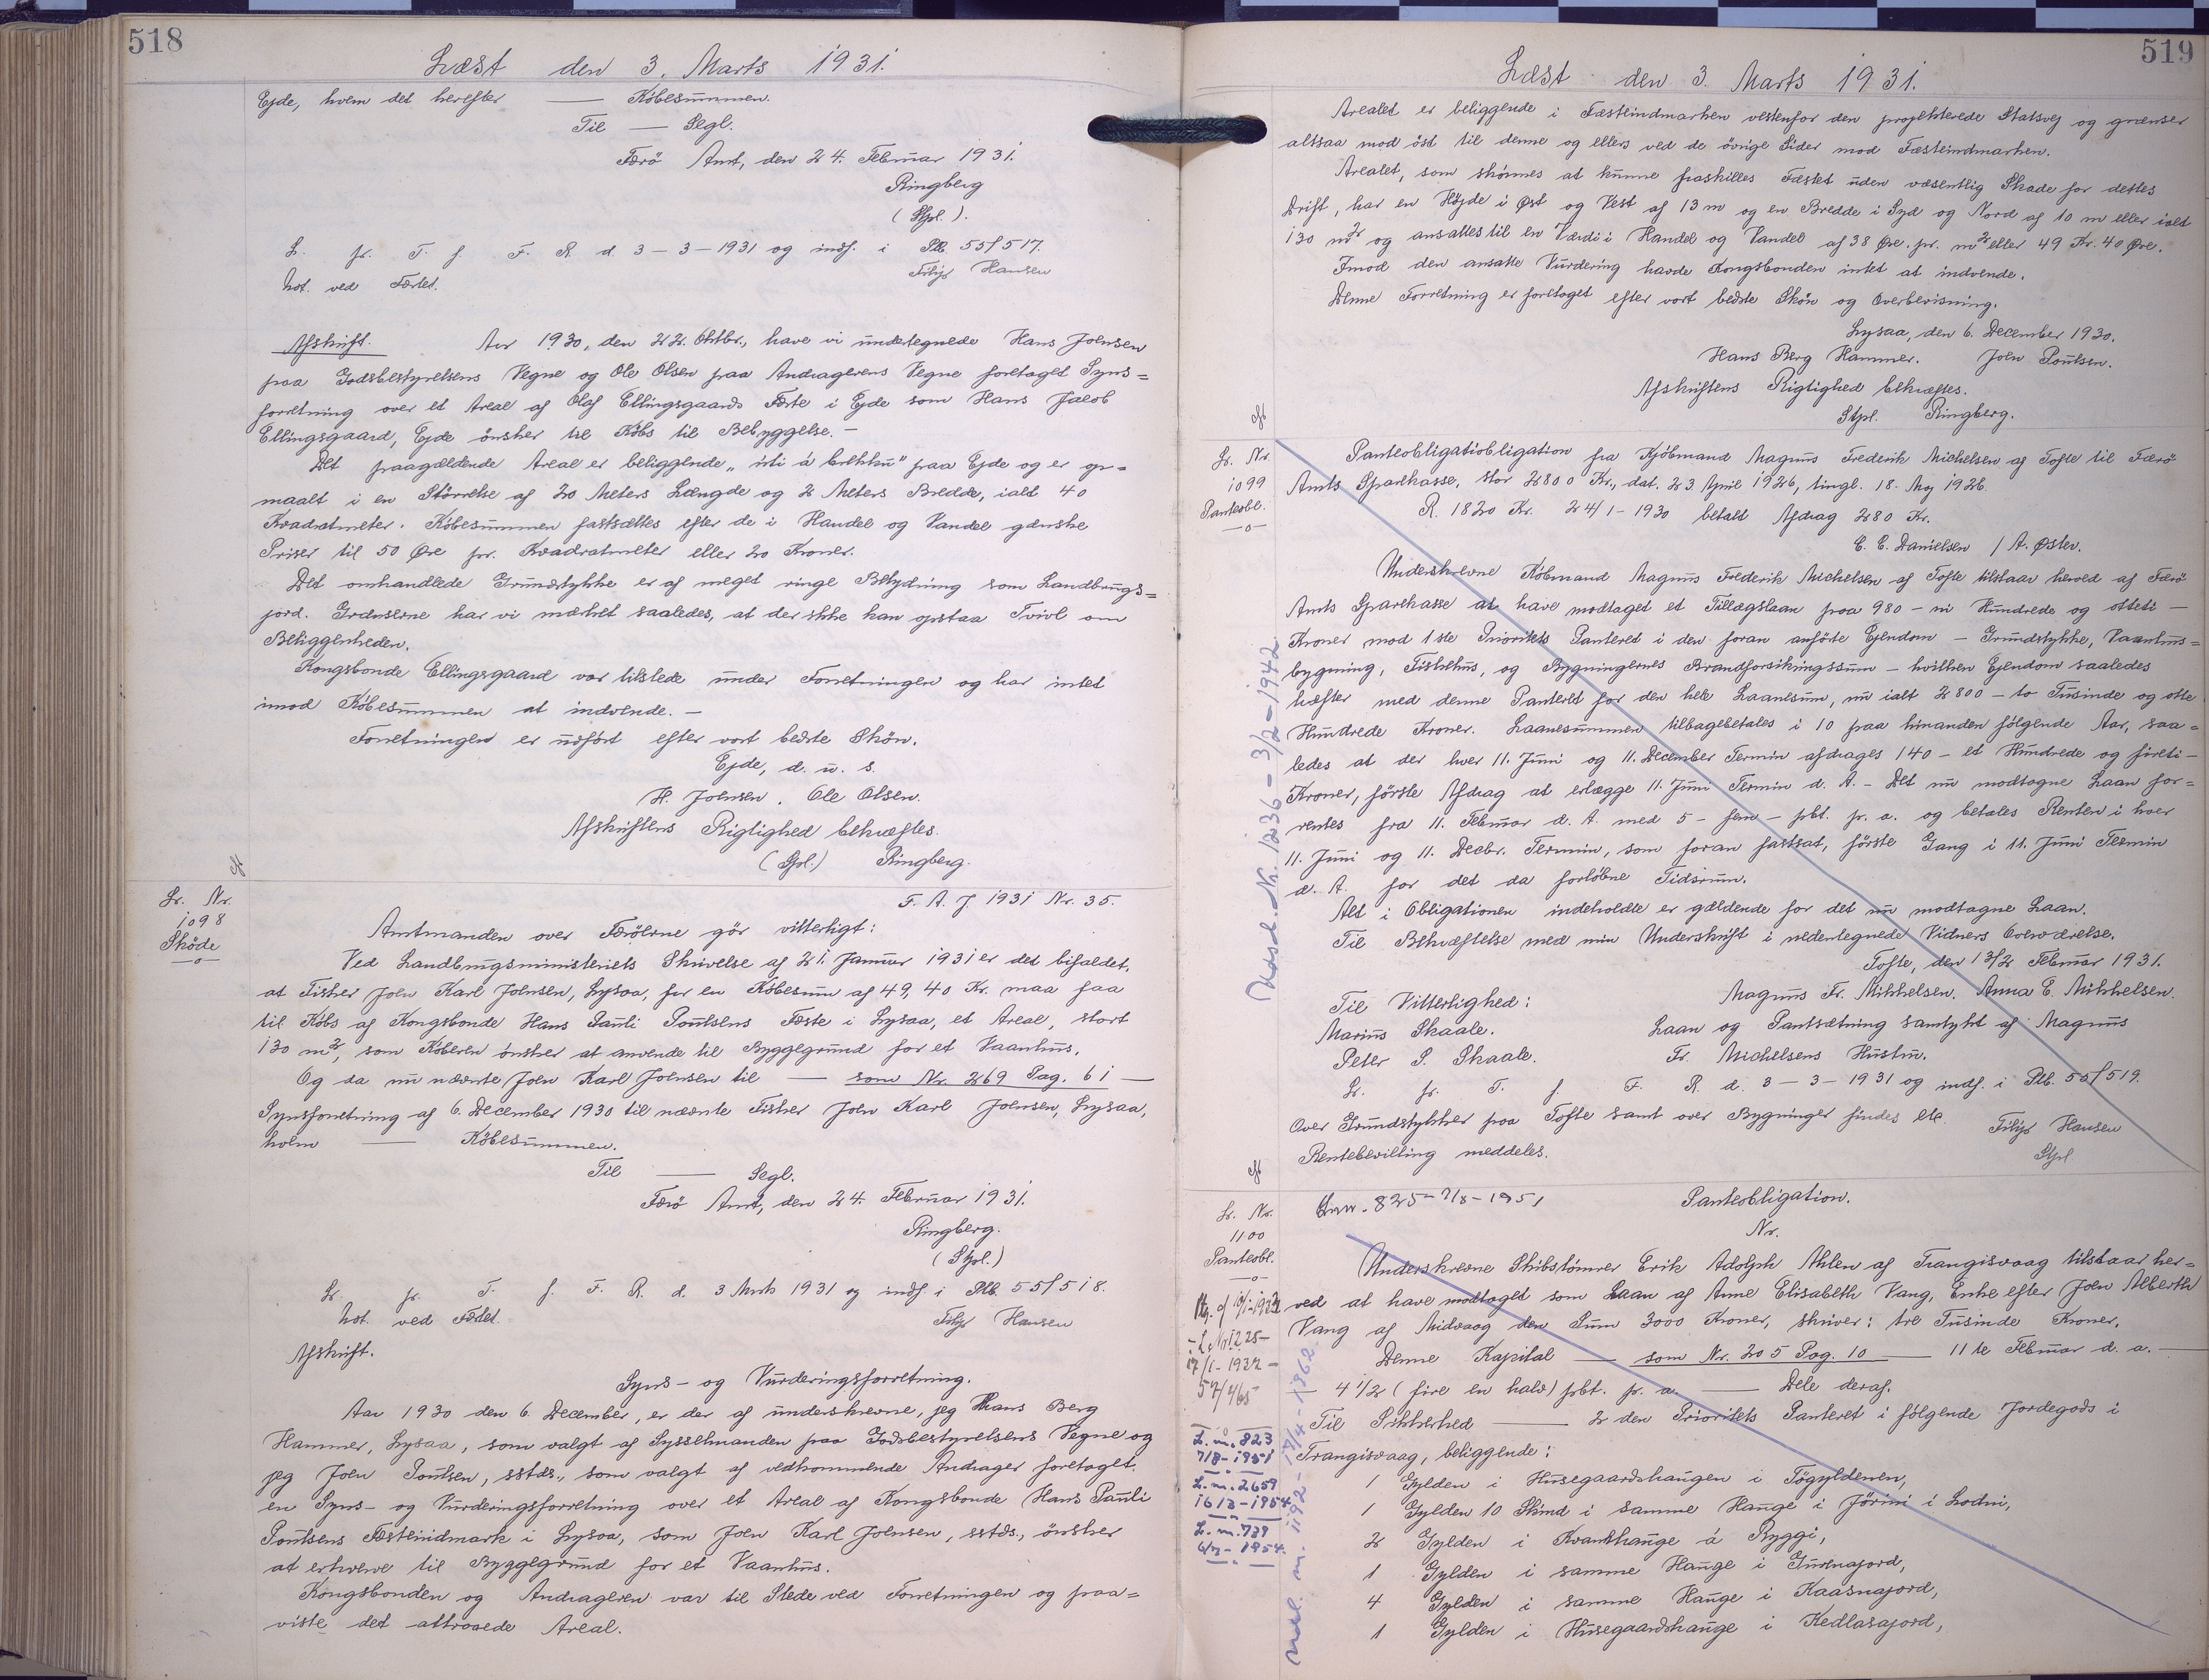 518
Læst den 3. Marts 1931.
Ejde, hvem det herefter — Købesummen.
Til — Segl.
Færø Amt, den 24. Februar 1931.
Ringberg
(Stpl.).
L. fr. T. f. F. R. d. 3-3-1931 og indf. i Ptb. 55f517.
Not. ved Fæstet.
Filip Hansen
Afskrift. Aar 1930, den 22. Oktbr., have vi undertegnede Hans Joensen
paa Godsbestyrelsens Vegne og Ole Olsen paa Andragerens Vegne foretaget Syns=
forretning over et Areal af Olaf Ellingsgaards Fæste i Ejde som Hans Jacob
Ellingsgaard, Ejde ønsker til Købs til Bebyggelse. —
Det paagældende Areal er beliggende "úti á brekku" paa Ejde og er op=
maalt i en Størrelse af 20 Meters Længde og 2 Meters Bredde, ialt 40
Kvadratmeter. Købesummen fastsættes efter de i Handel og Vandel gænske
Priser til 50 Øre pr. Kvadratmeter eller 20 Kroner.
Det omhandlede Grundstykke er af meget ringe Betydning som Landbrugs=
jord. Grænserne har vi mærket saaledes, at der ikke kan opstaa Tvivl om
Beliggenheden.
Kongsbonde Ellingsgaard var tilstede under Forretningen og har intet
imod Købesummen at indvende. —
Forretningen er udført efter vort bedste Skøn.
Ejde, d. u. s.
H. Joensen. Ole Olsen.
Afskriftens Rigtighed bekræftes.
(Stpl.) Ringberg.
L. Nr.
1098
Skøde
—o—
F. A. J. 1931 Nr. 35.
Amtmanden over Færøerne gör vitterligt:
Ved Landbrugsministeriets Skrivelse af 21. Januar 1931 er det bifaldet,
at Fisker Joen Karl Joensen, Lysaa, for en Købesum af 49,40 Kr. maa faa
til Købs af Kongsbonde Hans Pauli Poulsens Fæste i Lysaa, et Areal, stort
130 m², som Køberen ønsker at anvende til Byggegrund for et Vaanhus.
Og da nu nævnte Joen Karl Joensen til — som Nr. 269 Pag. 61 —
Synsforretning af 6. December 1930 til nævnte Fisker Joen Karl Joensen, Lysaa,
hvem — Købesummen.
Til — Segl.
Færø Amt, den 24. Februar 1931.
Ringberg.
(Stpl.)
L. fr. T. f. F. R. d. 3 Marts 1931 og indf. i Ptb. 55f518.
Not. ved Fæstet.
Filip Hansen
Afskrift.
Syns- og Vurderingsforretning.
Aar 1930 den 6. December, er der af underskrevne, jeg Hans Berg
Hammer, Lysaa, som valgt af Sysselmanden paa Godsbestyrelsens Vegne og
jeg Joen Poulsen, sstds., som valgt af vedkommende Andrager foretaget
en Syns- og Vurderingsforretning over et Areal af Kongsbonde Hans Pauli
Poulsens Fæsteindmark i Lysaa, som Joen Karl Joensen, sstds., ønsker
at erhverve til Byggegrund for et Vaanhus.
Kongsbonden og Andrageren var til Stede ved Forretningen og paa=
viste det attraaede Areal.
519
Læst den 3. Marts 1931.
Arealet er beliggende i Fæsteindmarken vestenfor den projekterede Statsvej og grænser
altsaa mod öst til denne og ellers ved de övrige Sider mod Fæsteindmarken.
Arealet, som skönnes at kunne fraskilles Fæstet uden væsentlig Skade for dettes
Drift, har en Højde i Øst og Vest af 13 m og en Bredde i Syd og Nord af 10 m eller ialt
130 m² og ansættes til en Værdi i Handel og Vandel af 38 Øre. pr. m² eller 49 Kr. 40 Øre.
Imod den ansatte Vurdering havde Kongsbonden intet at indvende.
Denne Forretning er foretaget efter vort bedste Skön og Overbevisning.
Lysaa, den 6. December 1930.
Hans Berg Hammer. Joen Poulsen.
Afskriftens Rigtighed bekræftes.
Stpl. Ringberg.
L. Nr.
1099
Panteobl.
—o—
Panteobligatiobligation fra Kjöbmand Magnus Frederik Michelsen af Tofte til Færö
Amts Sparekasse, stor 2800 Kr., dat. 23. April 1926, tingl. 18. Maj 1926.
R. 1820 Kr. 24/1-1930 betalt Afdrag 280 Kr.
E. E. Danielsen / A. Øster.
Underskrevne Købmand Magnus Frederik Michelsen af Tofte tilstaar herved af Færö
Amts Sparekasse at have modtaget et Tillægslaan paa 980 — ni Hundrede og otteti —
Kroner mod 1ste Prioritets Panteret i den foran anförte Ejendom — Grundstykke, Vaanhus=
bygning, Fiskehus, og Bygningernes Brandforsikringssum — hvilken Ejendom saaledes
hæfter med denne Panteret for den hele Laanesum, nu ialt 2800 — to Tusinde og otte
Hundrede Kroner. Laanesummen tilbagebetales i 10 paa hinanden følgende Aar, saa=
ledes at der hver 11. Juni og 11. December Termin afdrages 140 — et Hundrede og fireti —
Kroner, første Afdrag at erlægge 11. Juni Termin d. A. — Det nu modtagne Laan for=
rentes fra 11. Februar d. A. med 5 — fem — pCt. p. a. og betales Renten i hver
11. Juni og 11. Decbr. Termin, som foran fastsat, første Gang i 11. Juni Termin
d. A. for det da forløbne Tidsrum.
Alt i Obligationen indeholdte er gældende for det nu modtagne Laan.
Til Bekræftelse med min Underskrift i nedentegnede Vidners Overværelse.
Tofte, den 13/2 Februar 1931.
Til Vitterlighed:
Magnus Fr. Mikkelsen. Anna E. Mikkelsen.
Marius Skaale.
Laan og Pantsætning samtykt af Magnus
Peter P. Skaale.
Fr. Michelsens Hustru.
L. fr. T. f. F. R. d. 3-3-1931 og indf. i Ptb. 55f519.
Over Grundstykker paa Tofte samt over Bygninger findes etc.
Filip Hansen
Rentebevilling meddeles.
Stpl.
Nr. 1236 - 3/2 - 1942
L. Nr.
1100
Panteobl.
—o—
825 - 7/8 - 1951
Panteobligation.
Nr.
Underskrevne Skibstømrer Erik Adolph Ahlen af Trangisvaag tilstaar her=
ved at have modtaget som Laan af Anne Elisabeth Vang, Enke efter Joen Alberth
Vang af Midvaag den Sum 3000 Kroner, skriver: tre Tusinde Kroner.
Denne Kapital — som Nr. 205 Pag. 10 — 11te Februar d. a. —
— 4 1/2 (fire en halv) pCt. p. a. — Dele deraf.
Til Sikkerhed — 2 den Prioritets Panteret i følgende Jordegods i
Trangisvaag, beliggende:
1 Gylden i Húsegaardshaugen i Tögyldenen,
1 Gylden 10 Skind i samme Hauge i Jörini í Lodni,
2 Gylden i Kvannhauge á Ryggi,
1 Gylden i samme Hauge i Gurnajord,
4 Gylden i samme Hauge i Kaasnajord,
1 Gylden i Húsegaardshauge i Kedlasajord,
17/1-1932 -
57/465
L. nr. 823
7/8-1951
L. nr. 2659
16/3-1954
L. nr. 739
1954.